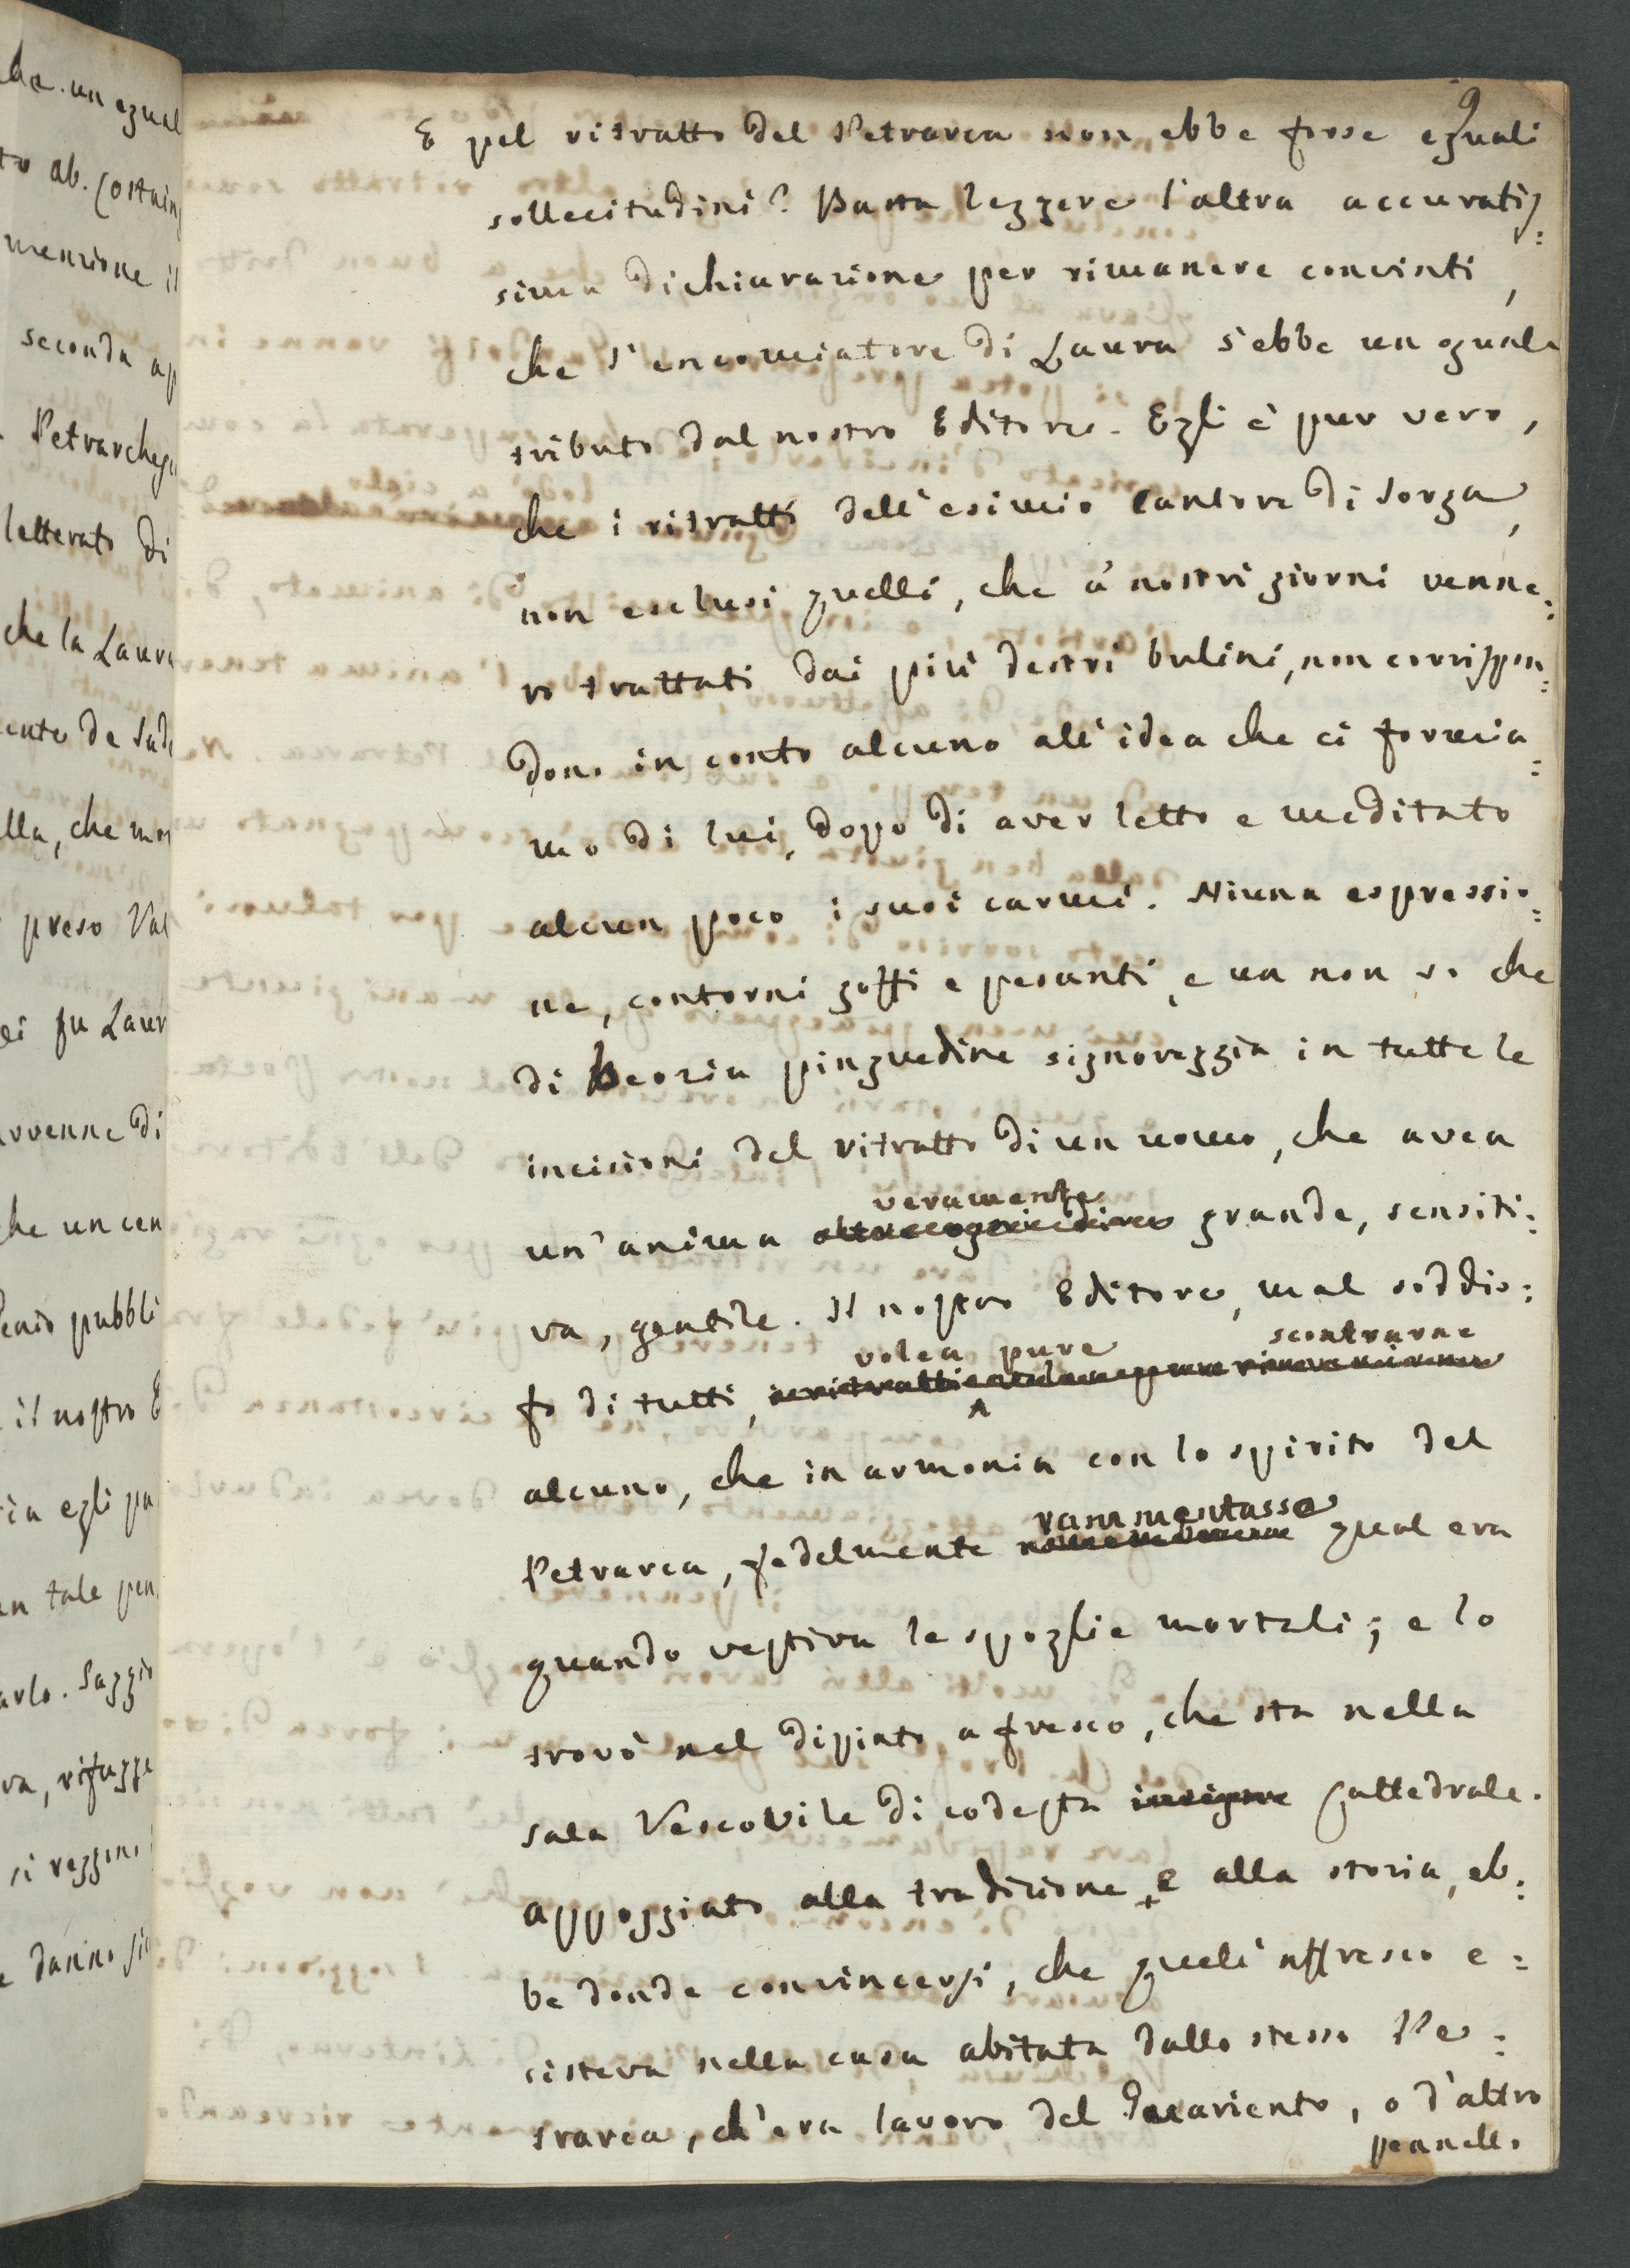 9
E pel ritratto del Petrarca non ebbe forse eguali
sollecitudini? Basta leggere l'altra accuratis=
sima dichiarazione per rimanere convinti,
che l'encomiatore di Laura s'ebbe un eguale
tributo dal nostro Editore. Egli è pur vero,
che i ritratti dell'esimio Cantore di Sorga,
non esclusi quelli, che a' nostri giorni venne=
ro trattati dai più destri bulini, non corrispon=
dono in conto alcuno all'idea che ci formia=
mo di lui, dopo di aver letto e meditato
alcun poco i suoi carmi. Niuna espressio=
ne, contorni goffi e pesanti, e un non so che
di beozia pinguedine signoreggia in tutte le
incisioni del ritratto di un uomo, che avea
veramente
un'anima grande, sensiti=
va, gentile. Il nostro Editore, mal soddis=
volea pure scontrarne
fo di tutti,
alcuno, che in armonia con lo spirito del
rammentasse
Petrarca, fedelmente qual era
quando vestiva le spoglie mortali; e lo
trovò nel dipinto a fresco, che sta nella
sala Vescovile di codesta insigne Cattedrale.
appoggiato alla tradizione, e alla storia, eb=
be donde convincersi, che quell'affresco e=
sisteva nella casa abitata dallo stesso Pe=
trarca, ch'era lavoro del Guariento, o d'altro
pennello
che un egual
to ab. Costain
menzione il
seconda ap
Petrarche
letterato di
che la Laura
de Sade
lla, che mor
preso Val
ei fu Laur
avvenne di
che un cen
pubbli
il nostro E
ia egli pu
un tale pen
arlo. Saggio
va, rifugge
si veggono
danno